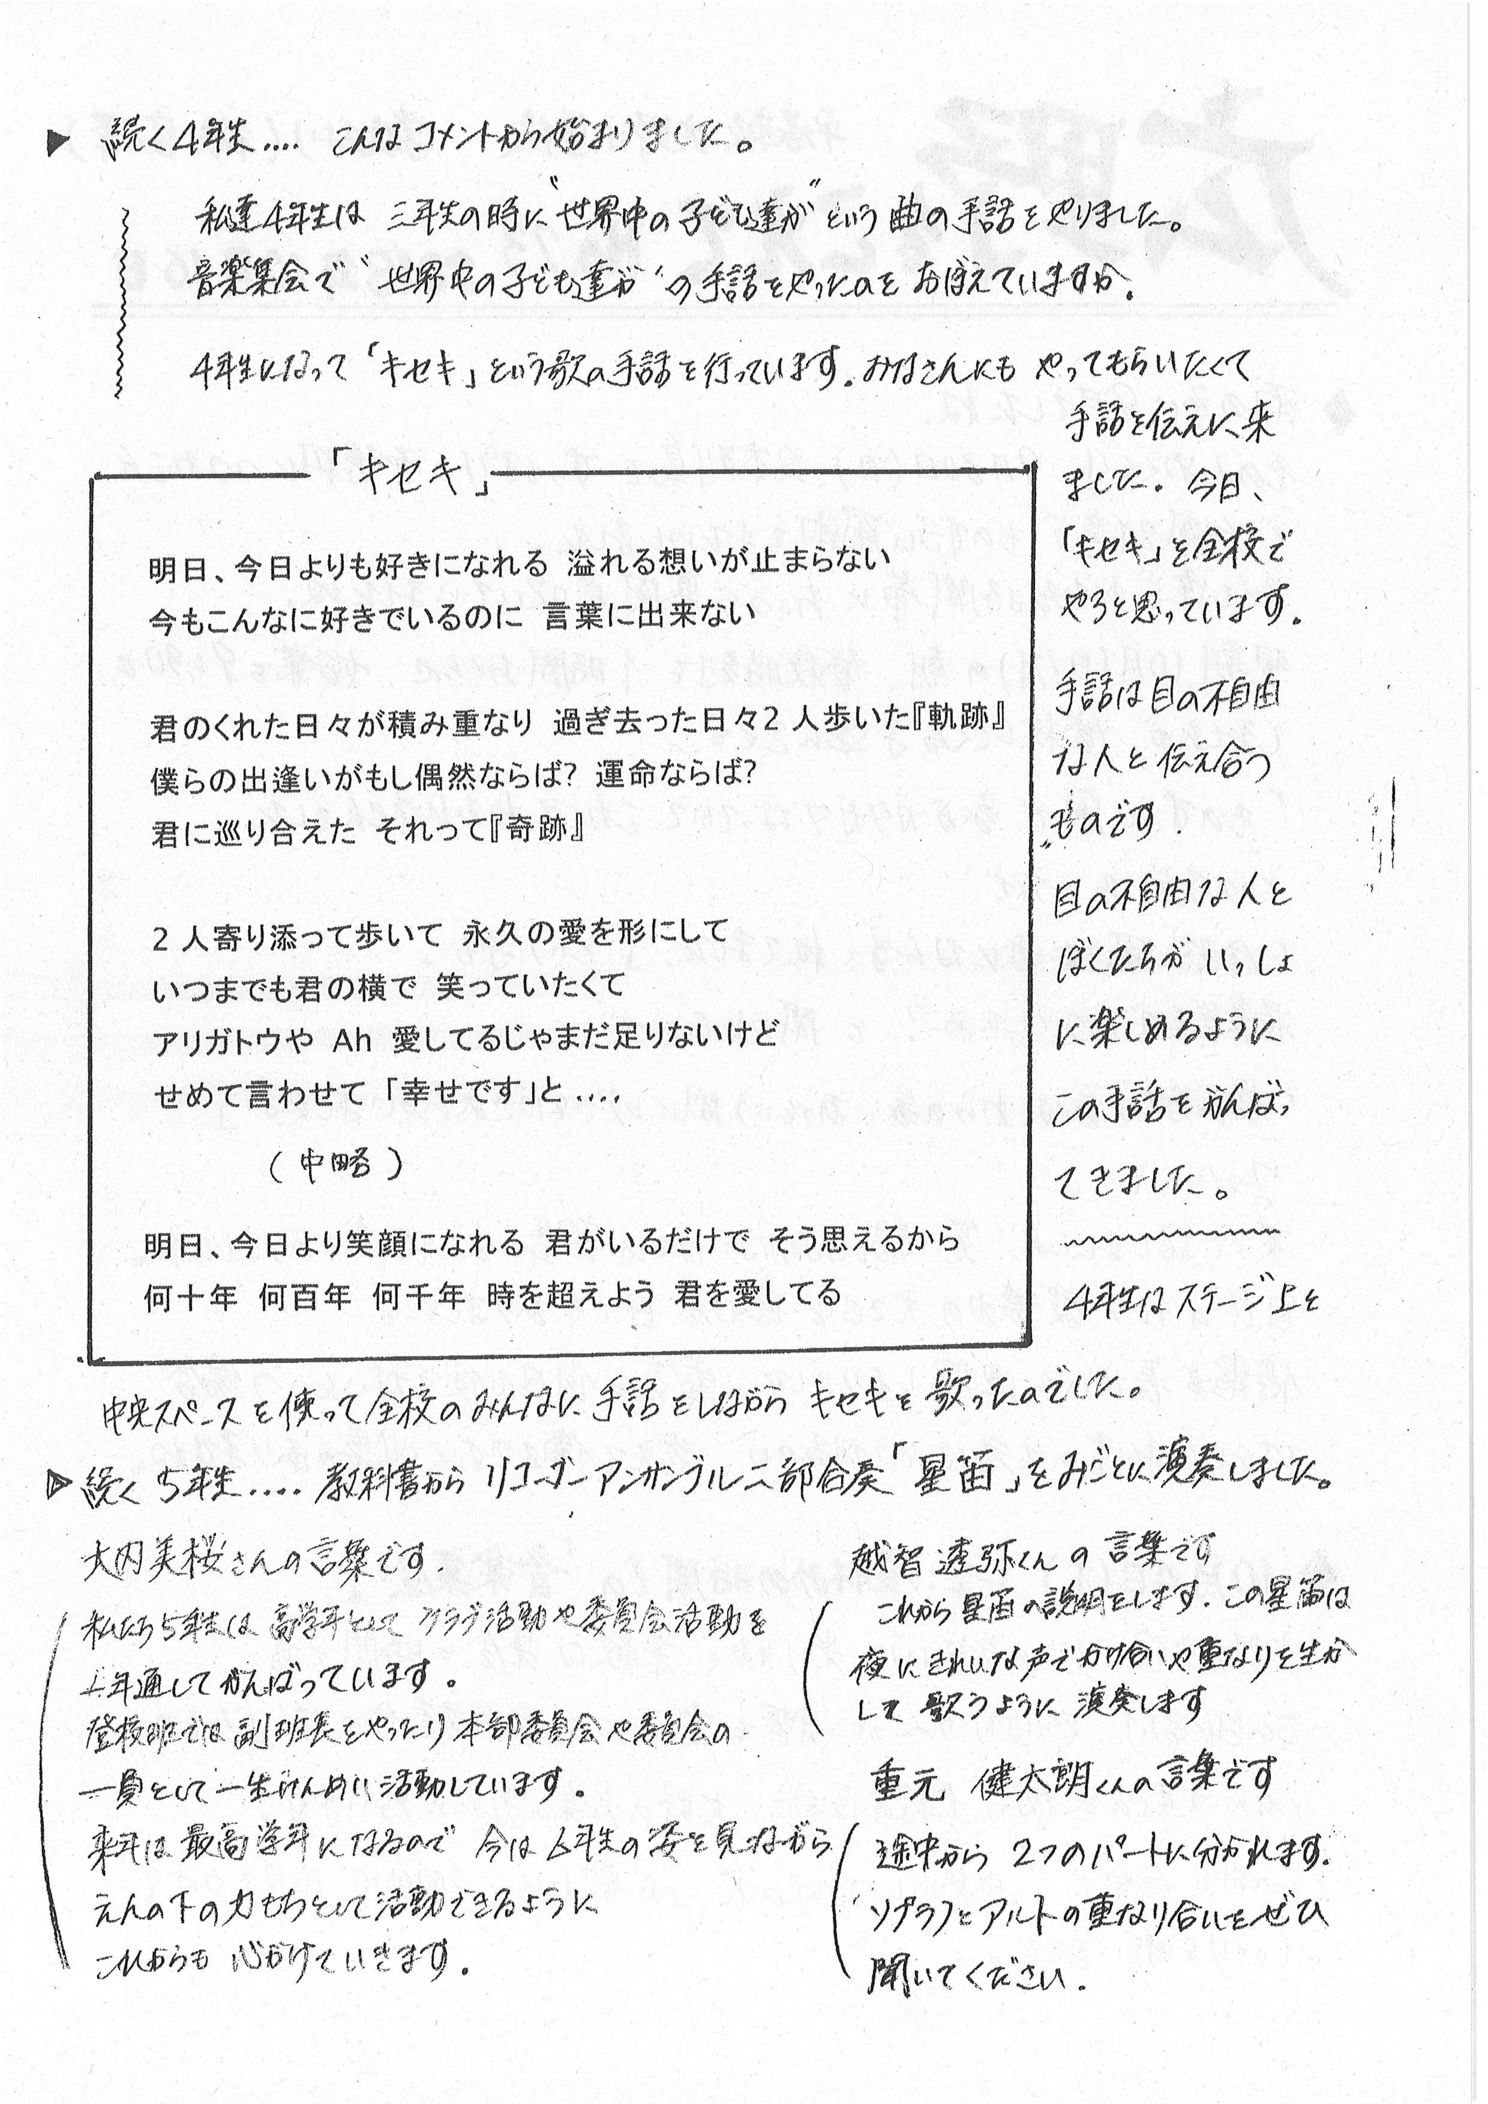 ▶ 続く4年生.... こんなコメントから始まりました。
私達4年生は 三年生の時に“世界中の子ども達が”という曲の手話をやりました。
音楽集会で“世界中の子ども達が”の手話をやったのを おぼえていますか.
4年生になって「キセキ」という歌の手話を行っています. みなさんにも やってもらいたくて
手話を伝えに来
ました. 今日、
「キセキ」を全校で
やろと思っています.
手話は目の不自由
な人と 伝え合う
ものです.
目の不自由な人と
ぼくたちが いっしょ
に楽しめるように
この手話を がんばっ
てきました。
「キセキ」
明日、今日よりも好きになれる 溢れる想いが止まらない
今もこんなに好きでいるのに 言葉に出来ない
君のくれた日々が積み重なり 過ぎ去った日々2人歩いた『軌跡』
僕らの出逢いがもし偶然ならば? 運命ならば?
君に巡り合えた それって『奇跡』
2人寄り添って歩いて 永久の愛を形にして
いつまでも君の横で 笑っていたくて
アリガトウや Ah 愛してるじゃまだ足りないけど
せめて言わせて 「幸せです」と....
(中略)
明日、今日より笑顔になれる 君がいるだけで そう思えるから
何十年 何百年 何千年 時を超えよう 君を愛してる
4年生はステージ上と
中央スペースを使って全校のみんなに 手話をしながら キセキを 歌ったのでした。
▷ 続く 5年生.... 教科書から リコーダーアンサンブル二部合奏「星笛」をみごとに演奏しました。
大内美桜さんの言葉です.
私たち5年生は 高学年として クラブ活動や委員会活動を
1年通してがんばっています。
登校班では 副班長をやったり 本部委員会や委員会の
一員として一生けんめい活動しています.
来年は最高学年になるので 今は6年生の姿を見ながら
えんの下の力もちとして活動できるように
これからも 心がけていきます.
越智透弥くんの言葉です
これから星笛の説明をします. この星笛は
夜にきれいな声でかけ合いや重なりを生か
して 歌うように 演奏します
重元 健太朗くんの言葉です
途中から 2つのパートに分かれます.
ソプラノとアルトの重なり合いをぜひ
聞いてください.